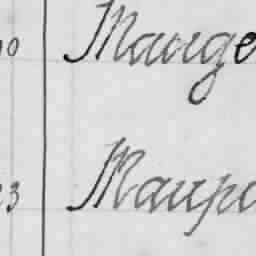 0 Mauge
3 Maupa